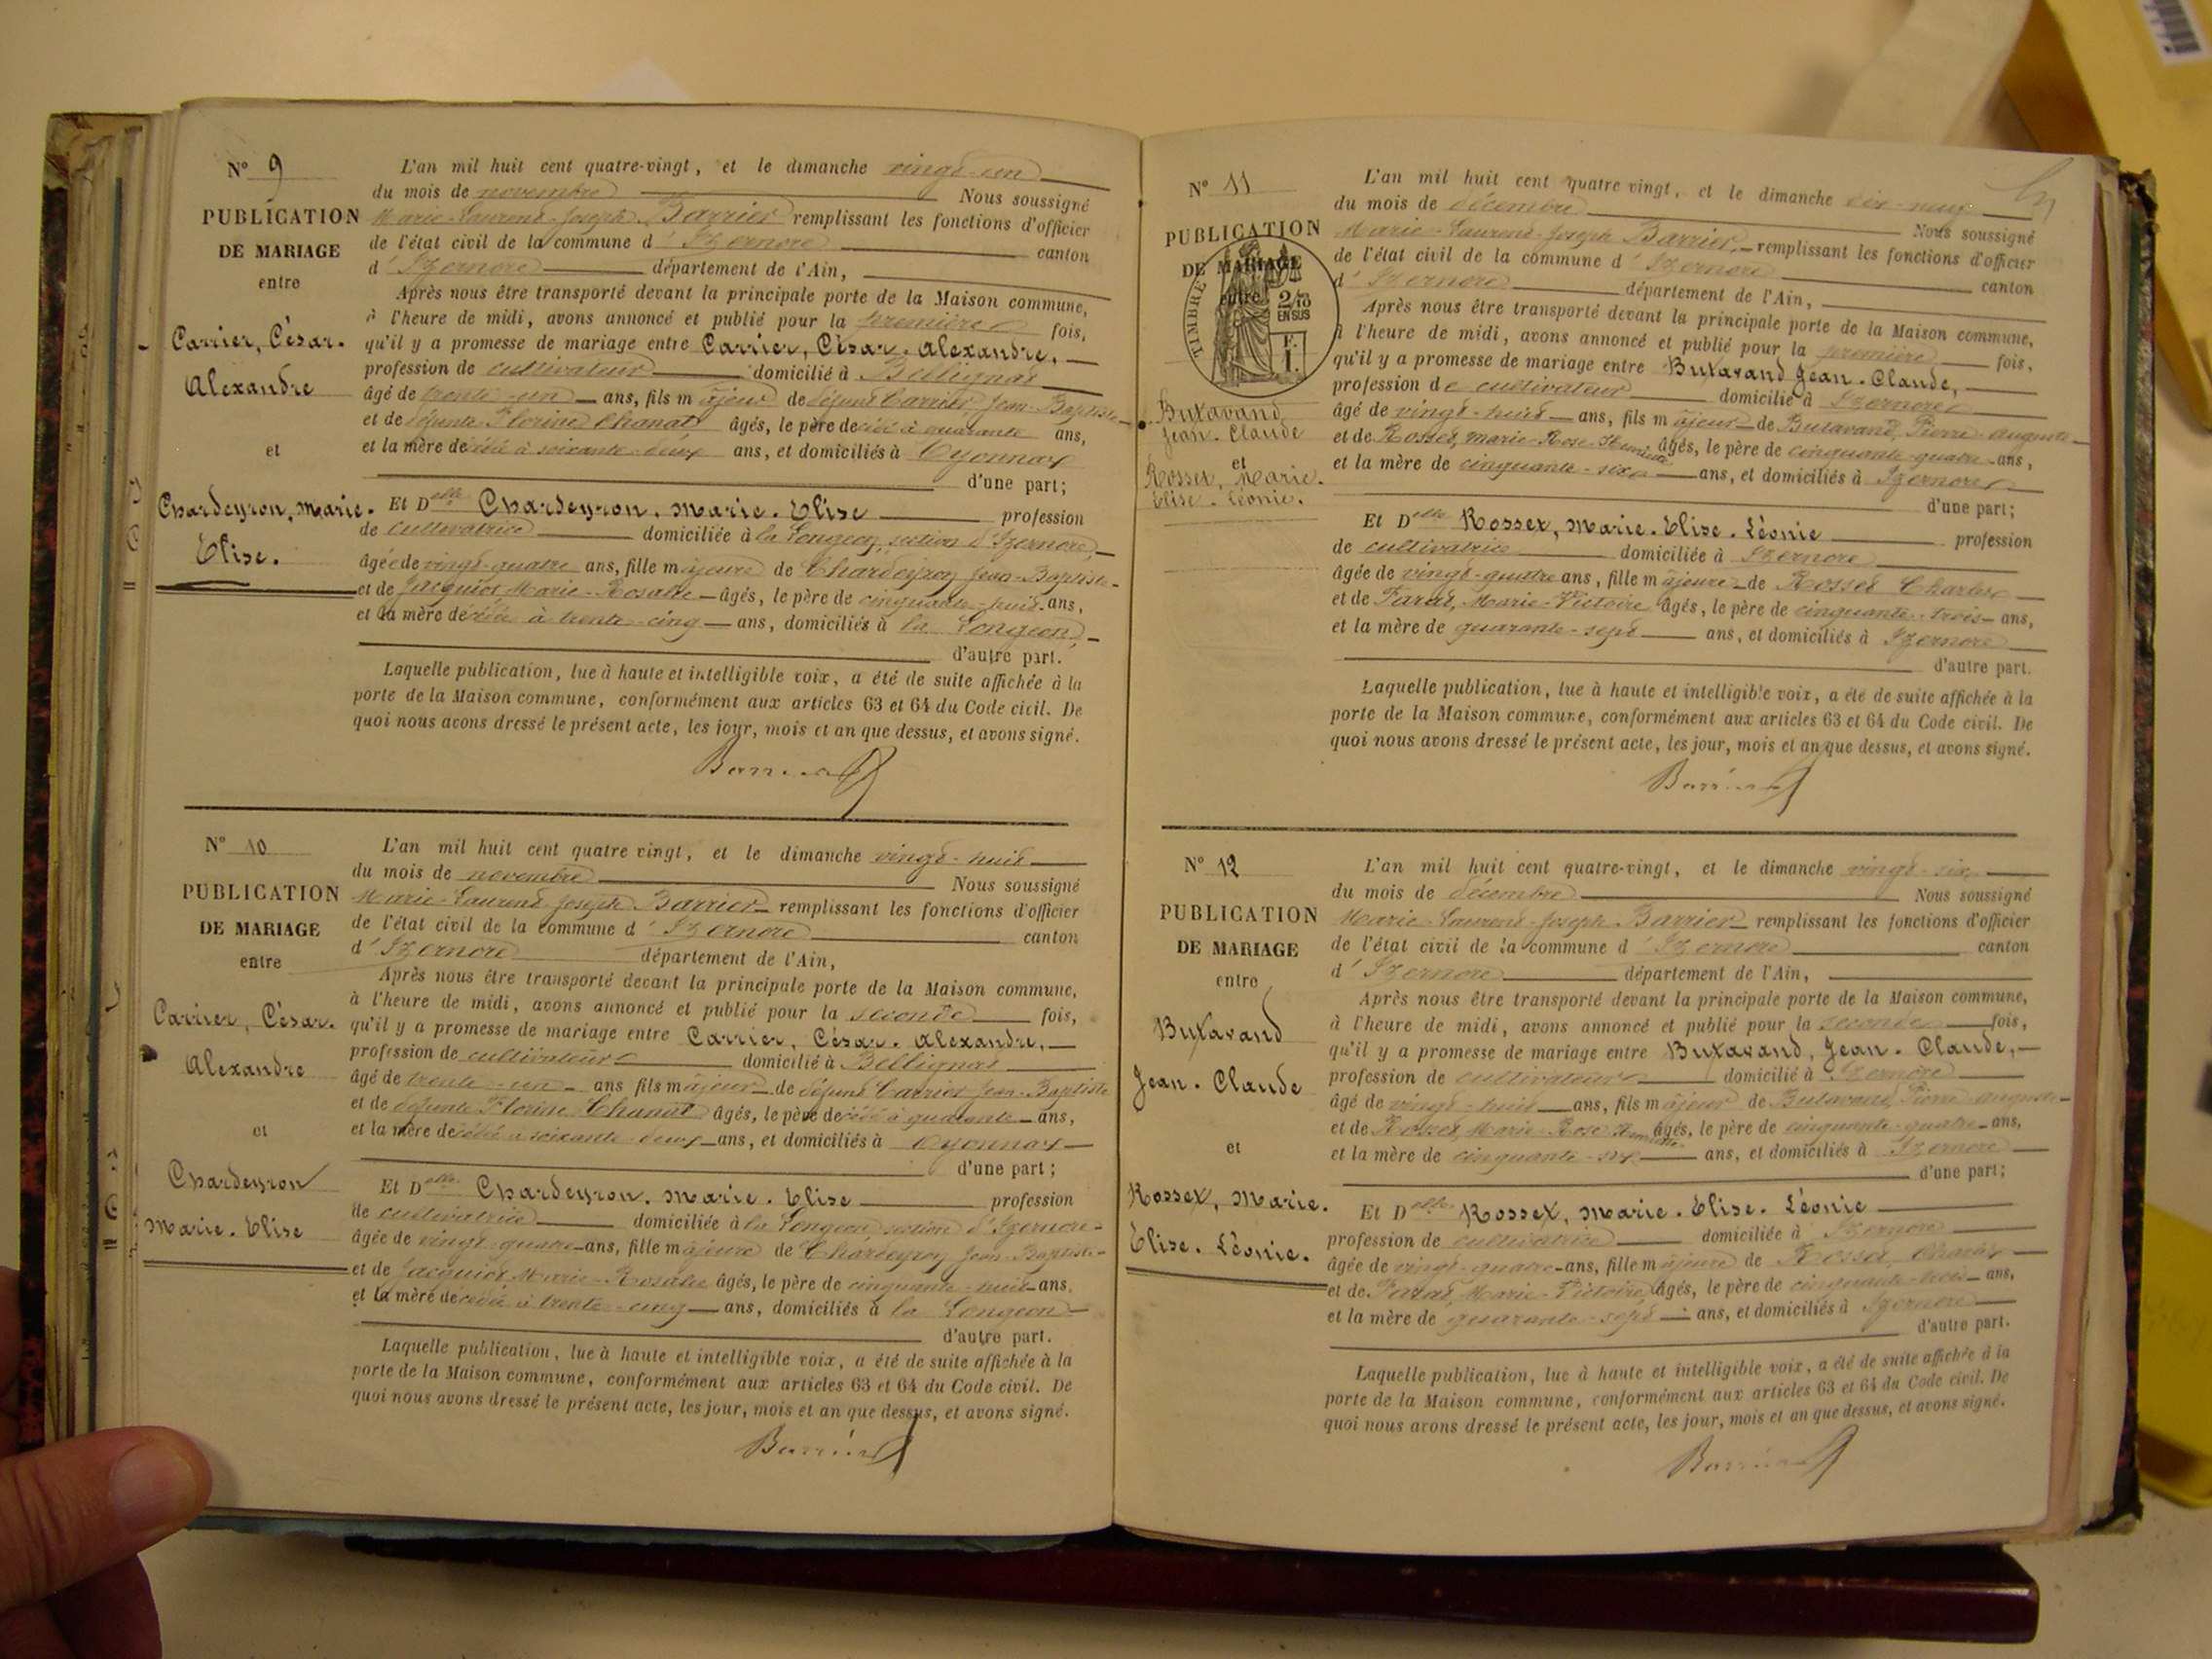 N° 9
PUBLICATION
DE MARIAGE
entre
Carrier, César.
Alexandre
et
Chardeyron, Marie.
Elise.
L'an mil huit cent quatre-vingt, et le dimanche vingt-un
du mois de novembre Nous soussigné
Marie-Laurent-Joseph Barrier remplissant les fonctions d'officier
de l'état civil de la commune d'Izernore canton
d'Izernore département de l'Ain,
Après nous être transporté devant la principale porte de la Maison commune,
à l'heure de midi, avons annoncé et publié pour la première fois,
qu'il y a promesse de mariage entre Carrier, César. Alexandre,
profession de cultivateur domicilié à
âgé de trente-un ans, fils majeur de défunt Carrier Jean-Baptiste
et de défunte Florine Chanat âgés, le père décédé à quarante ans,
et la mère décédée à soixante-deux ans, et domiciliés à Oyonnax
d'une part;
Et Delle Chardeyron, Marie. Elise profession
de cultivatrice domiciliée à la Longeon, section d'Izernore,
âgée de vingt-quatre ans, fille majeure de Chardeyron Jean-Baptiste
et de Jacquiot Marie-Rosalie âgés, le père de cinquante-huit ans,
et la mère décédée à trente-cinq ans, domiciliés à la Longeon
d'autre part.
Laquelle publication, lue à haute et intelligible voix, a été de suite affichée à la
porte de la Maison commune, conformément aux articles 63 et 64 du Code civil. De
quoi nous avons dressé le présent acte, les jour, mois et an que dessus, et avons signé.
Barrier
N° 10
PUBLICATION
DE MARIAGE
entre
Carrier, César.
Alexandre
et
Chardeyron
Marie. Elise
L'an mil huit cent quatre vingt, et le dimanche vingt-huit
du mois de novembre Nous soussigné
Marie-Laurent-Joseph Barrier remplissant les fonctions d'officier
de l'état civil de la commune d'Izernore canton
d'Izernore département de l'Ain,
Après nous être transporté devant la principale porte de la Maison commune,
à l'heure de midi, avons annoncé et publié pour la seconde fois,
qu'il y a promesse de mariage entre Carrier, César. Alexandre,
profession de cultivateur domicilié à Bellignat
âgé de trente-un ans fils majeur de défunt Carrier Jean-Baptiste
et de défunte Florine Chanat âgés, le père décédé à quarante ans,
et la mère décédée à soixante-deux ans, et domiciliés à Oyonnax
d'une part;
Et Delle Chardeyron. Marie. Elise profession
de cultivatrice domiciliée à la Longeon, section d'Izernore
âgée de vingt-quatre ans, fille majeure de Chardeyron Jean-Baptiste
et de Jacquiot Marie-Rosalie âgés, le père de cinquante-huit ans,
et la mère décédée à trente-cinq ans, domiciliés à la Longeon
d'autre part.
Laquelle publication, lue à haute et intelligible voix, a été de suite affichée à la
porte de la Maison commune, conformément aux articles 63 et 64 du Code civil. De
quoi nous avons dressé le présent acte, les jour, mois et an que dessus, et avons signé.
Barrier
N° 11
PUBLICATION
DE MARIAGE
entre
TIMBRE
2/10
EN SUS
F.
1.
Butavand
Jean. Claude
et
Rosset, Marie.
Elise. Léonie.
L'an mil huit cent quatre vingt, et le dimanche dix-neuf
du mois de décembre Nous soussigné
Marie-Laurent-Joseph Barrier remplissant les fonctions d'officier
de l'état civil de la commune d'Izernore
d'Izernore département de l'Ain, canton
Après nous être transporté devant la principale porte de la Maison commune,
à l'heure de midi, avons annoncé et publié pour la première fois,
qu'il y a promesse de mariage entre Butavand Jean. Claude,
profession de cultivateur domicilié à Izernore
âgé de vingt-huit ans, fils majeur de Butavand, Pierre-Auguste
et de Rosset, Marie-Rose-Henriette âgés, le père de cinquante-quatre ans,
et la mère de cinquante-six ans, et domiciliés à Izernore
d'une part;
Et Delle Rosset, Marie. Elise. Léonie profession
de cultivatrice domiciliée à Izernore
âgée de vingt-quatre ans, fille majeure de Rosset Charles
et de Marie-Victoire âgés, le père de cinquante-trois ans,
et la mère de quarante-sept ans, et domiciliés à Izernore
d'autre part.
Laquelle publication, lue à haute et intelligible voix, a été de suite affichée à la
porte de la Maison commune, conformément aux articles 63 et 64 du Code civil. De
quoi nous avons dressé le présent acte, les jour, mois et an que dessus, et avons signé.
Barrier
N° 12
PUBLICATION
DE MARIAGE
entre
Butavand
Jean. Claude
et
Rosset, Marie.
Elise. Léonie.
L'an mil huit cent quatre-vingt, et le dimanche vingt-six
du mois de décembre Nous soussigné
Marie-Laurent-Joseph Barrier remplissant les fonctions d'officier
de l'état civil de la commune d'Izernore canton
d'Izernore département de l'Ain,
Après nous être transporté devant la principale porte de la Maison commune,
à l'heure de midi, avons annoncé et publié pour la seconde fois,
qu'il y a promesse de mariage entre Butavand, Jean. Claude,
profession de cultivateur domicilié à Izernore
âgé de vingt-huit ans, fils majeur de Butavand, Pierre Auguste
et de Rosset, Marie-Rose Henriette âgés, le père de cinquante-quatre ans,
et la mère de cinquante-six ans, et domiciliés à Izernore
d'une part;
Et Delle Rosset, Marie. Elise. Léonie
profession de cultivatrice domiciliée à Izernore
âgée de vingt-quatre ans, fille majeure de Rosset, Charles
et de Marie-Victoire âgés, le père de cinquante-trois ans,
et la mère de quarante-sept ans, et domiciliés à Izernore
d'autre part.
Laquelle publication, lue à haute et intelligible voix, a été de suite affichée à la
porte de la Maison commune, conformément aux articles 63 et 64 du Code civil. De
quoi nous avons dressé le présent acte, les jour, mois et an que dessus, et avons signé.
Barrier